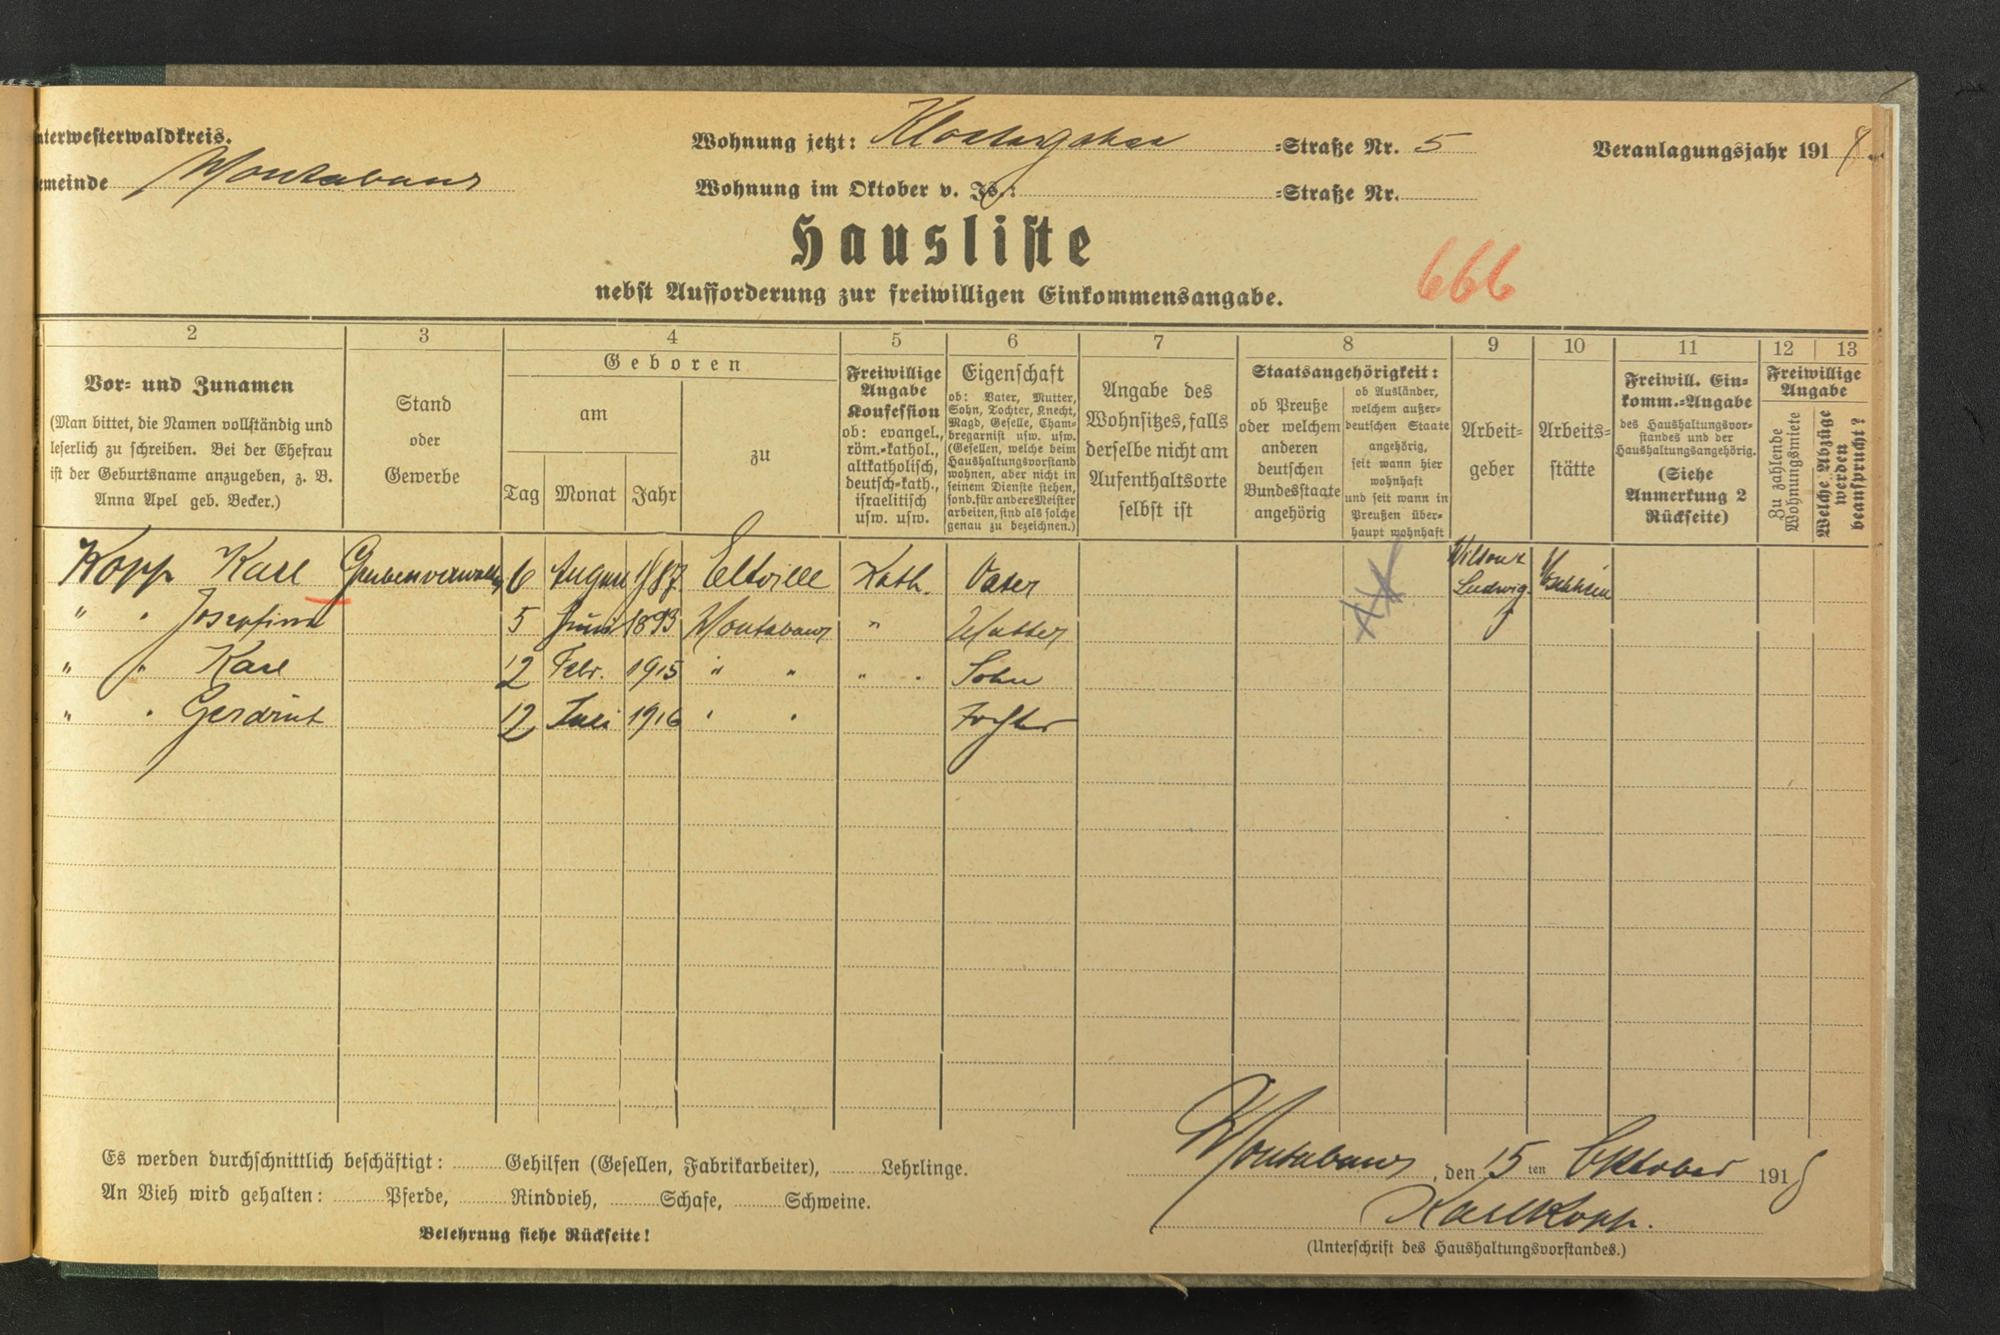 nterwesterwaldkreis.
emeinde Montabaur
Wohnung jetzt: Klostergasse =Straße Nr. 5
Wohnung im Oktober v. Js.: =Straße Nr.
Veranlagungsjahr 191
Hausliste
nebst Aufforderung zur freiwilligen Einkommensangabe.
666
2 3 4 5 6 7 8 9 10 11 12 13
Vor- und Zunamen
(Man bittet, die Namen vollständig und
leserlich zu schreiben. Bei der Ehefrau
ist der Geburtsname anzugeben, z. B.
Anna Apel geb. Becker.)
Stand
oder
Gewerbe
Geboren
am
Tag Monat Jahr
zu
Freiwillige
Angabe
Konfession
ob: evangel.,
röm.-kathol.,
altkatholisch,
deutsch-kath.,
israelitisch
usw. usw.
Eigenschaft
ob: Vater, Mutter,
Sohn, Tochter, Knecht,
Magd, Geselle, Cham-
bregarnist usw. usw.
(Gesellen, welche beim
Haushaltungsvorstand
wohnen, aber nicht in
seinem Dienste stehen,
sond. für andere Meister
arbeiten, sind als solche
genau zu bezeichnen.)
Angabe des
Wohnsitzes, falls
derselbe nicht am
Aufenthaltsorte
selbst ist
Staatsangehörigkeit:
ob Preuße
oder welchem
anderen
deutschen
Bundesstaate
angehörig
ob Ausländer,
welchem außer-
deutschen Staate
angehörig,
seit wann hier
wohnhaft
und seit wann in
Preußen über-
haupt wohnhaft
Arbeit-
geber
Arbeits-
stätte
Freiwill. Ein-
komm.-Angabe
des Haushaltungsvor-
standes und der
Haushaltungsangehörig.
(Siehe
Anmerkung 2
Rückseite)
Freiwillige
Angabe
Zu zahlende
Wohnungsmiete
Welche Abzüge
werden
beansprucht?
Kopp Karl Grubenverwalter 6 August 1887 Eltville Kath. Vater Ludwig
" " Josefine 5 Juni 1893 Montabaur " Mutter
" " Karl 12 Febr. 1915 " " " " Sohn
" " Gerdrut 12 Juli 1916 " " Tochter
Es werden durchschnittlich beschäftigt: Gehilfen (Gesellen, Fabrikarbeiter), Lehrlinge.
An Vieh wird gehalten: Pferde, Rindvieh, Schafe, Schweine.
Belehrung siehe Rückseite!
Montabaur, den 15 ten Oktober 191
Karl Kopp.
(Unterschrift des Haushaltungsvorstandes.)